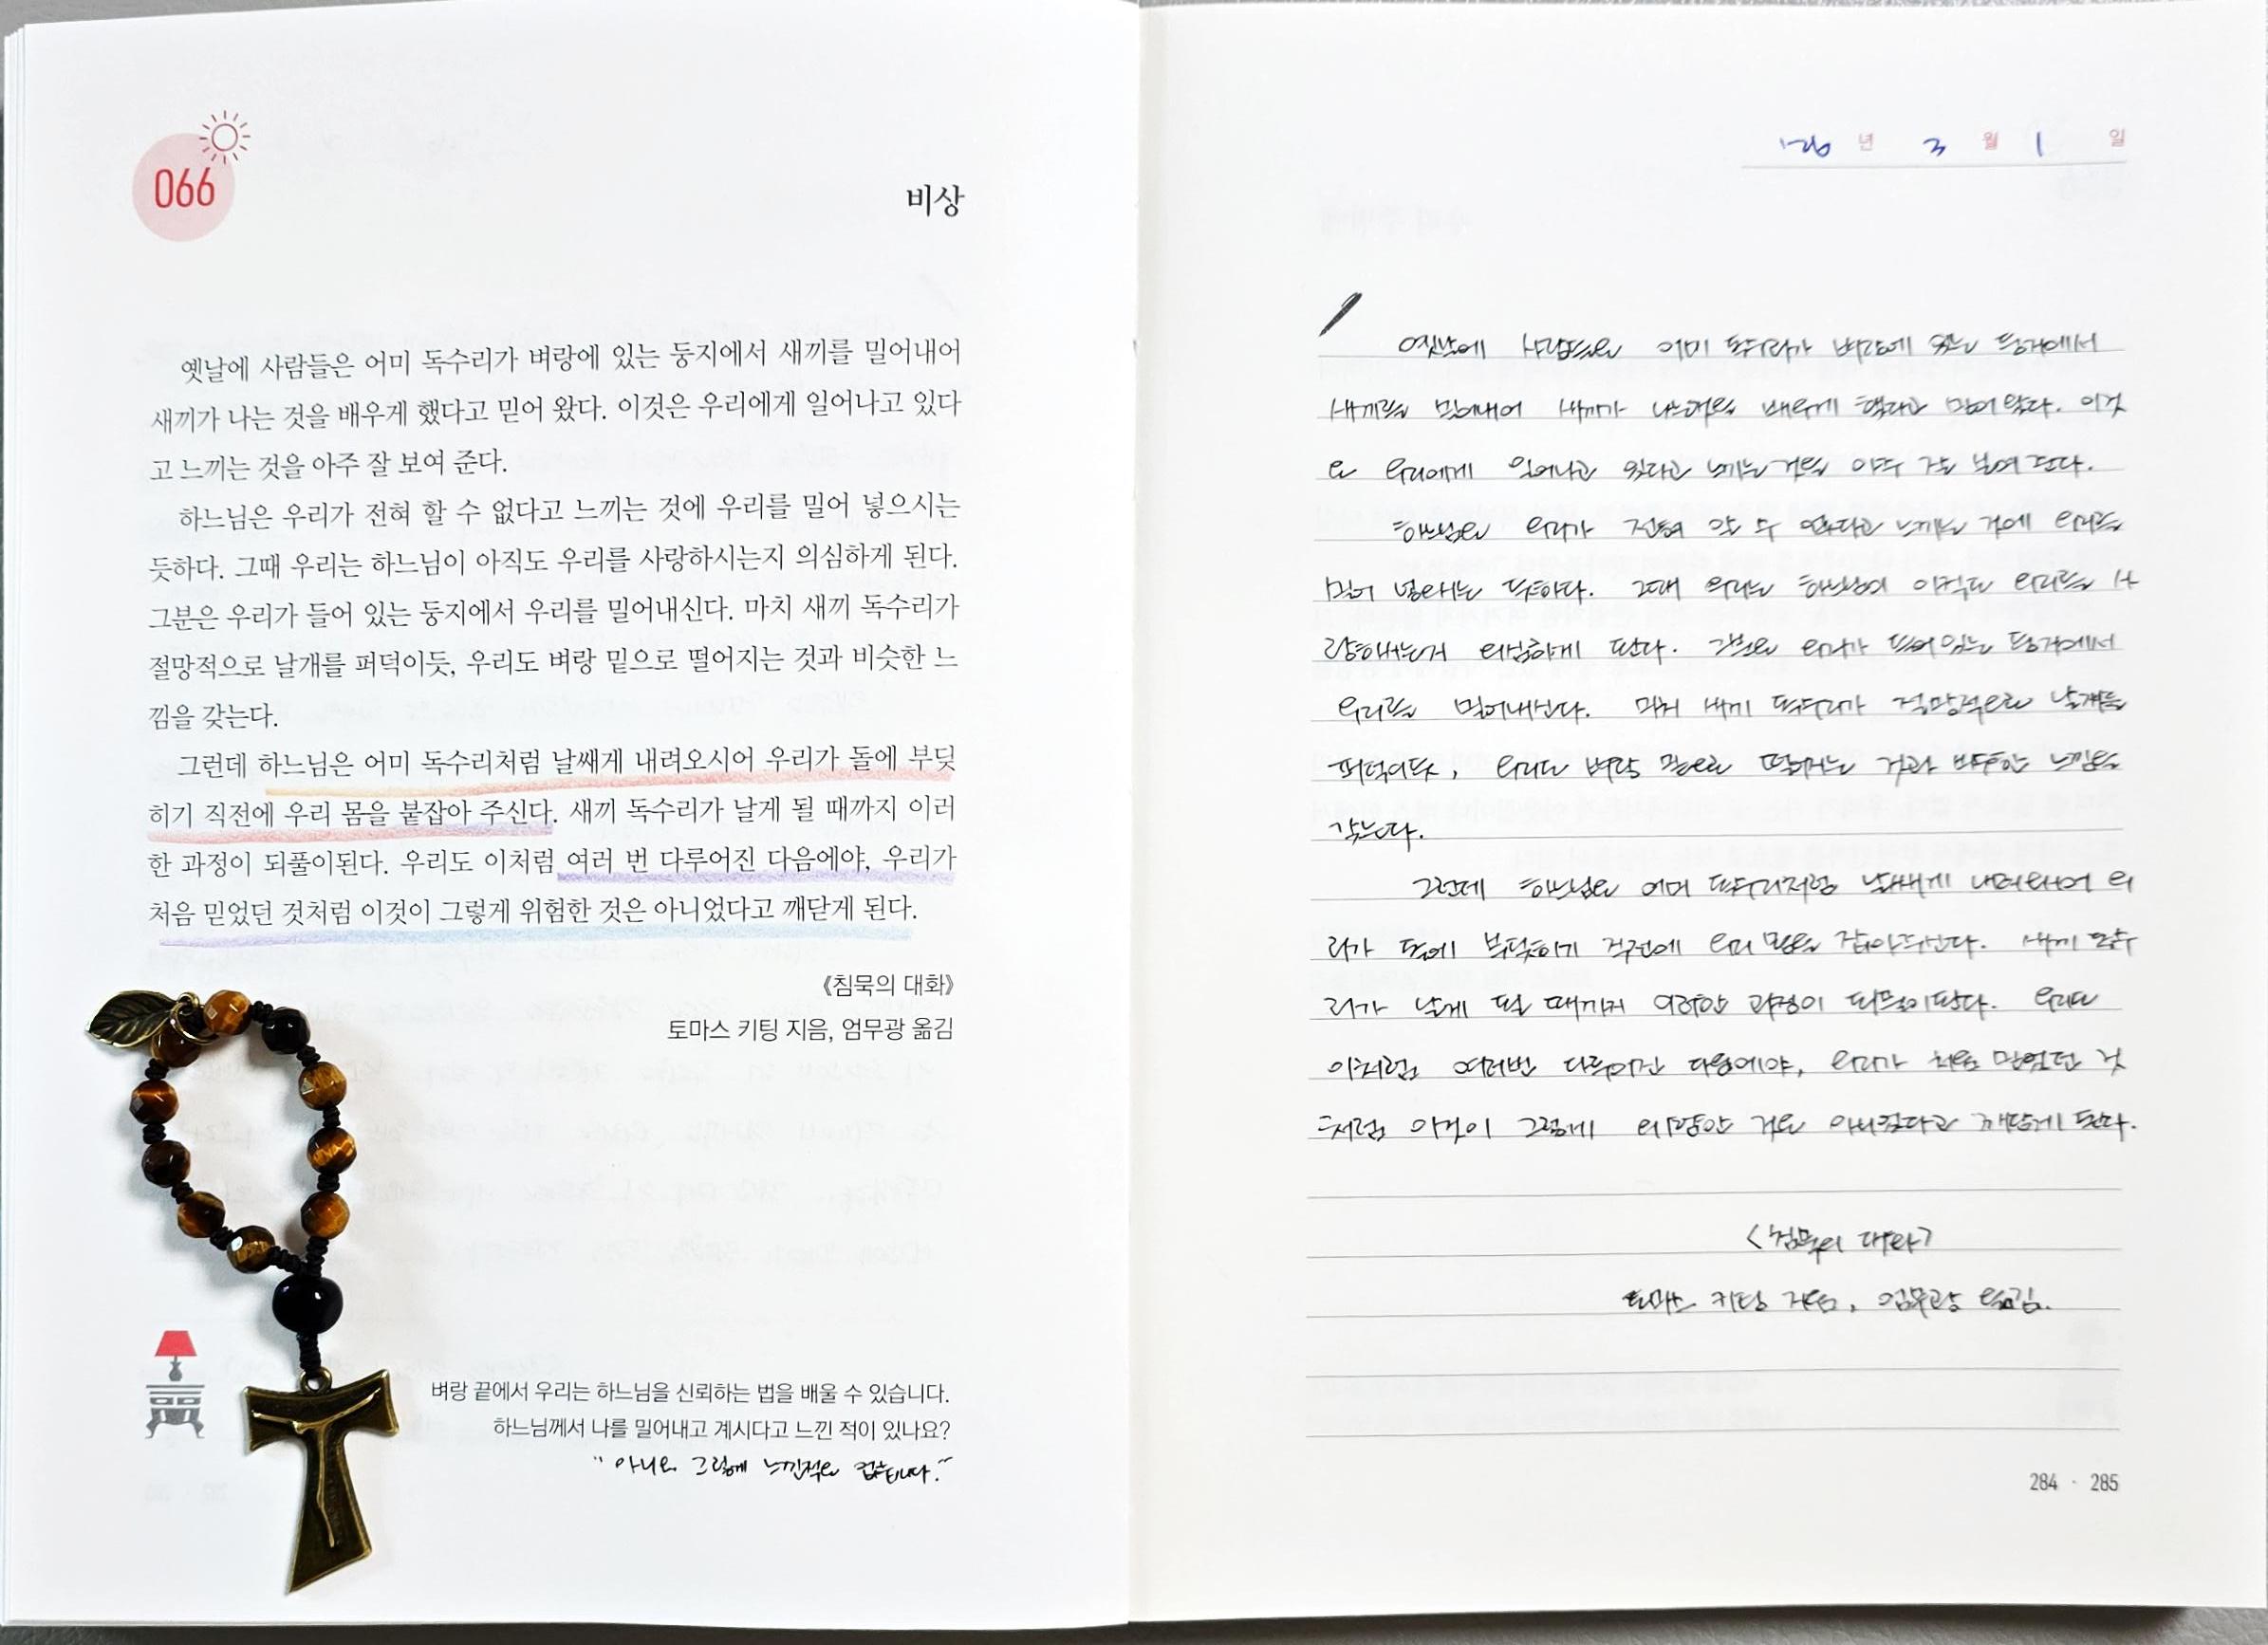 066
비상
옛날에 사람들은 어미 독수리가 벼랑에 있는 둥지에서 새끼를 밀어내어
새끼가 나는 것을 배우게 했다고 믿어 왔다. 이것은 우리에게 일어나고 있다
고 느끼는 것을 아주 잘 보여 준다.
하느님은 우리가 전혀 할 수 없다고 느끼는 것에 우리를 밀어 넣으시는
듯하다. 그때 우리는 하느님이 아직도 우리를 사랑하시는지 의심하게 된다.
그분은 우리가 들어 있는 둥지에서 우리를 밀어내신다. 마치 새끼 독수리가
절망적으로 날개를 퍼덕이듯, 우리도 벼랑 밑으로 떨어지는 것과 비슷한 느
낌을 갖는다.
그런데 하느님은 어미 독수리처럼 날쌔게 내려오시어 우리가 돌에 부딪
히기 직전에 우리 몸을 붙잡아 주신다. 새끼 독수리가 날게 될 때까지 이러
한 과정이 되풀이된다. 우리도 이처럼 여러 번 다루어진 다음에야, 우리가
처음 믿었던 것처럼 이것이 그렇게 위험한 것은 아니었다고 깨닫게 된다.
《침묵의 대화》
토마스 키팅 지음, 엄무광 옮김
벼랑 끝에서 우리는 하느님을 신뢰하는 법을 배울 수 있습니다.
하느님께서 나를 밀어내고 계시다고 느낀 적이 있나요?
"아니요 그렇게 느낀적은 없습니다."
'26 년 3 월 1 일
옛날에 사람들은 어미 독수리가 벼랑에 있는 둥지에서
새끼를 밀어내어 새끼가 나는것을 배우게 했다고 믿어 왔다. 이것
은 우리에게 일어나고 있다고 느끼는 것을 아주 잘 보여 준다.
하느님은 우리가 전혀 할 수 없다고 느끼는 것에 우리를
밀어 넣으시는 듯하다. 그때 우리는 하느님이 아직도 우리를 사
랑하시는지 의심하게 된다. 그분은 우리가 들어있는 둥지에서
우리를 밀어내신다. 마치 새끼 독수리가 절망적으로 날개를
퍼덕이듯, 우리도 벼랑 밑으로 떨어지는 것과 비슷한 느낌을
갖는다.
그런데 하느님은 어미 독수리처럼 날쌔게 내려오시어 우
리가 돌에 부딪히기 직전에 우리 몸을 잡아주신다. 새끼 독수
리가 날게 될 때까지 이러한 과정이 되풀이된다. 우리도
이처럼 여러번 다루어진 다음에야, 우리가 처음 믿었던 것
처럼 이것이 그렇게 위험한 것은 아니었다고 깨닫게 된다.
<침묵의 대화>
토마스 키팅 지음, 엄무광 옮김.
284 · 285